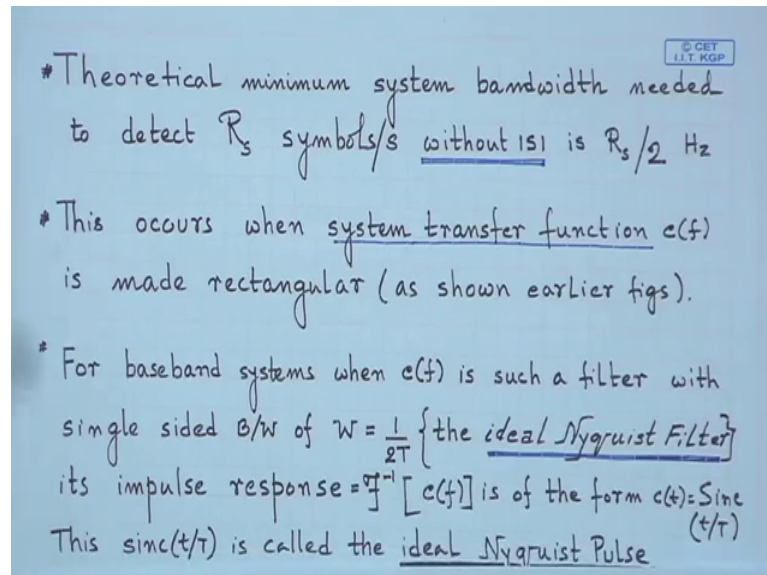 © CET
I.I.T. KGP
* Theoretical minimum system bandwidth needed
to detect Rs symbols/s without ISI is Rs/2 Hz
* This occurs when system transfer function c(f)
is made rectangular (as shown earlier figs).
* For baseband systems when c(f) is such a filter with
single sided B/W of W = 1/2T {the ideal Nyquist Filter}
its impulse response = F⁻¹[c(f)] is of the form c(t)=Sinc
(t/T)
This sinc(t/T) is called the ideal Nyquist Pulse